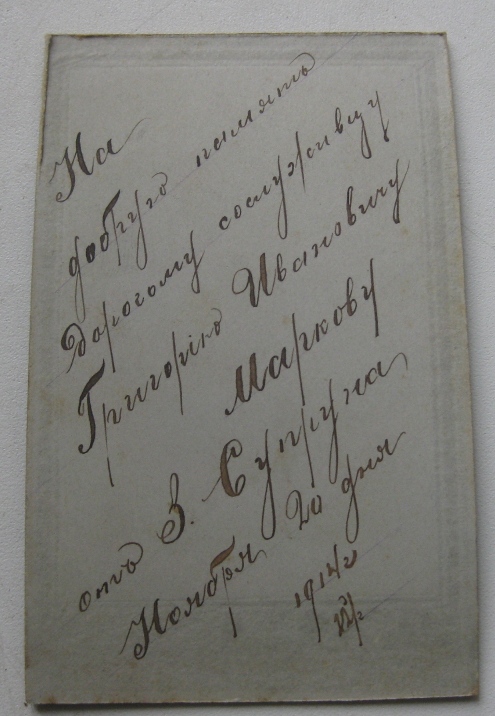 На
добрую память
дорогому сослуживцу
Григорію Ивановичу
Маркову
отъ З. Супруна
Ноября 20 дня